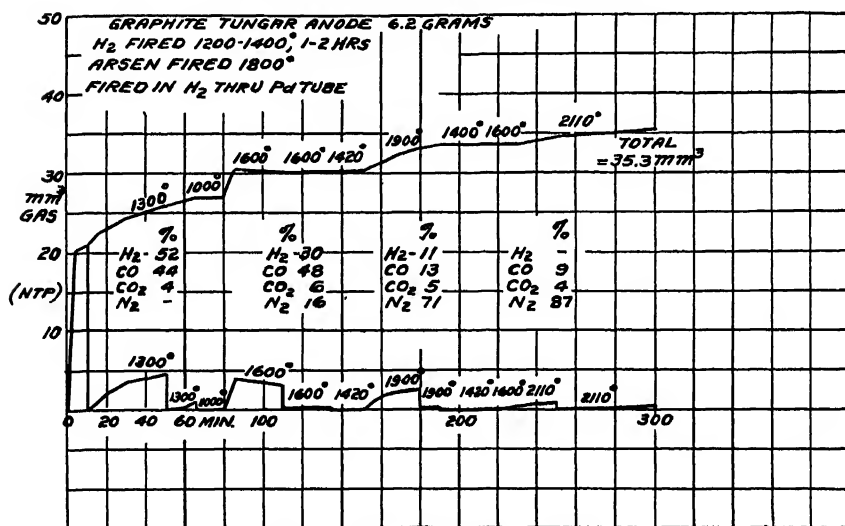 50
GRAPHITE TUNGAR ANODE 6.2 GRAMS
H₂ FIRED 1200-1400°, 1-2 HRS
ARSEN FIRED 1800°
FIRED IN H₂ THRU Pd TUBE
40
30
mm³
GAS
20
(NTP)
10
1300°
1000°
1600°
1600°
1420°
1900°
1400°
1600°
2110°
TOTAL
=35.3mm³
%
H₂- 52
CO 44
CO₂ 4
N₂ -
%
H₂-30
CO 48
CO₂ 6
N₂ 16
%
H₂-11
CO 13
CO₂ 5
N₂ 71
%
H₂ -
CO 9
CO₂ 4
N₂ 87
1300°
1300°
1000°
1600°
1600°
1420°
1900°
1900°
1420°
1600°
2110°
2110°
0 20 40 60 MIN. 100 200 300